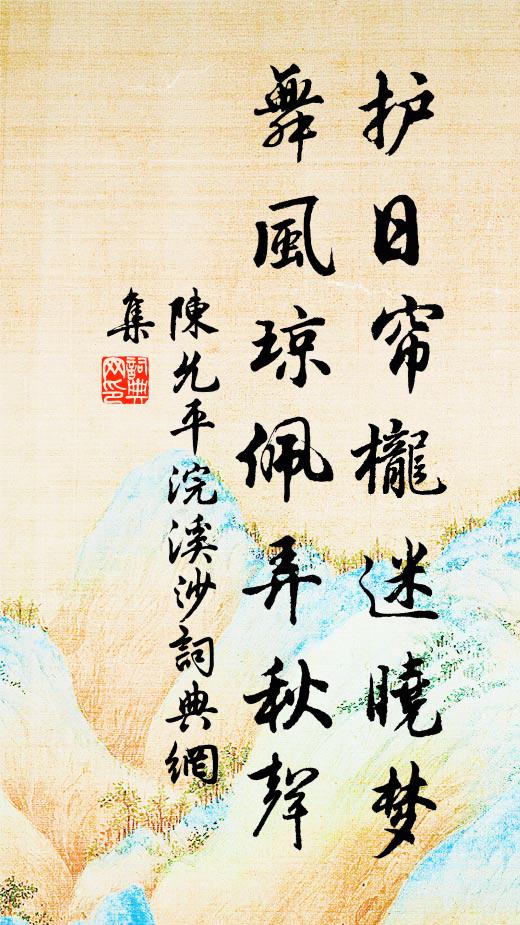 护日帘櫳迷曉梦
舞風琼佩弄秋聲
陳允平浣溪沙詞典網
集
詞典网印